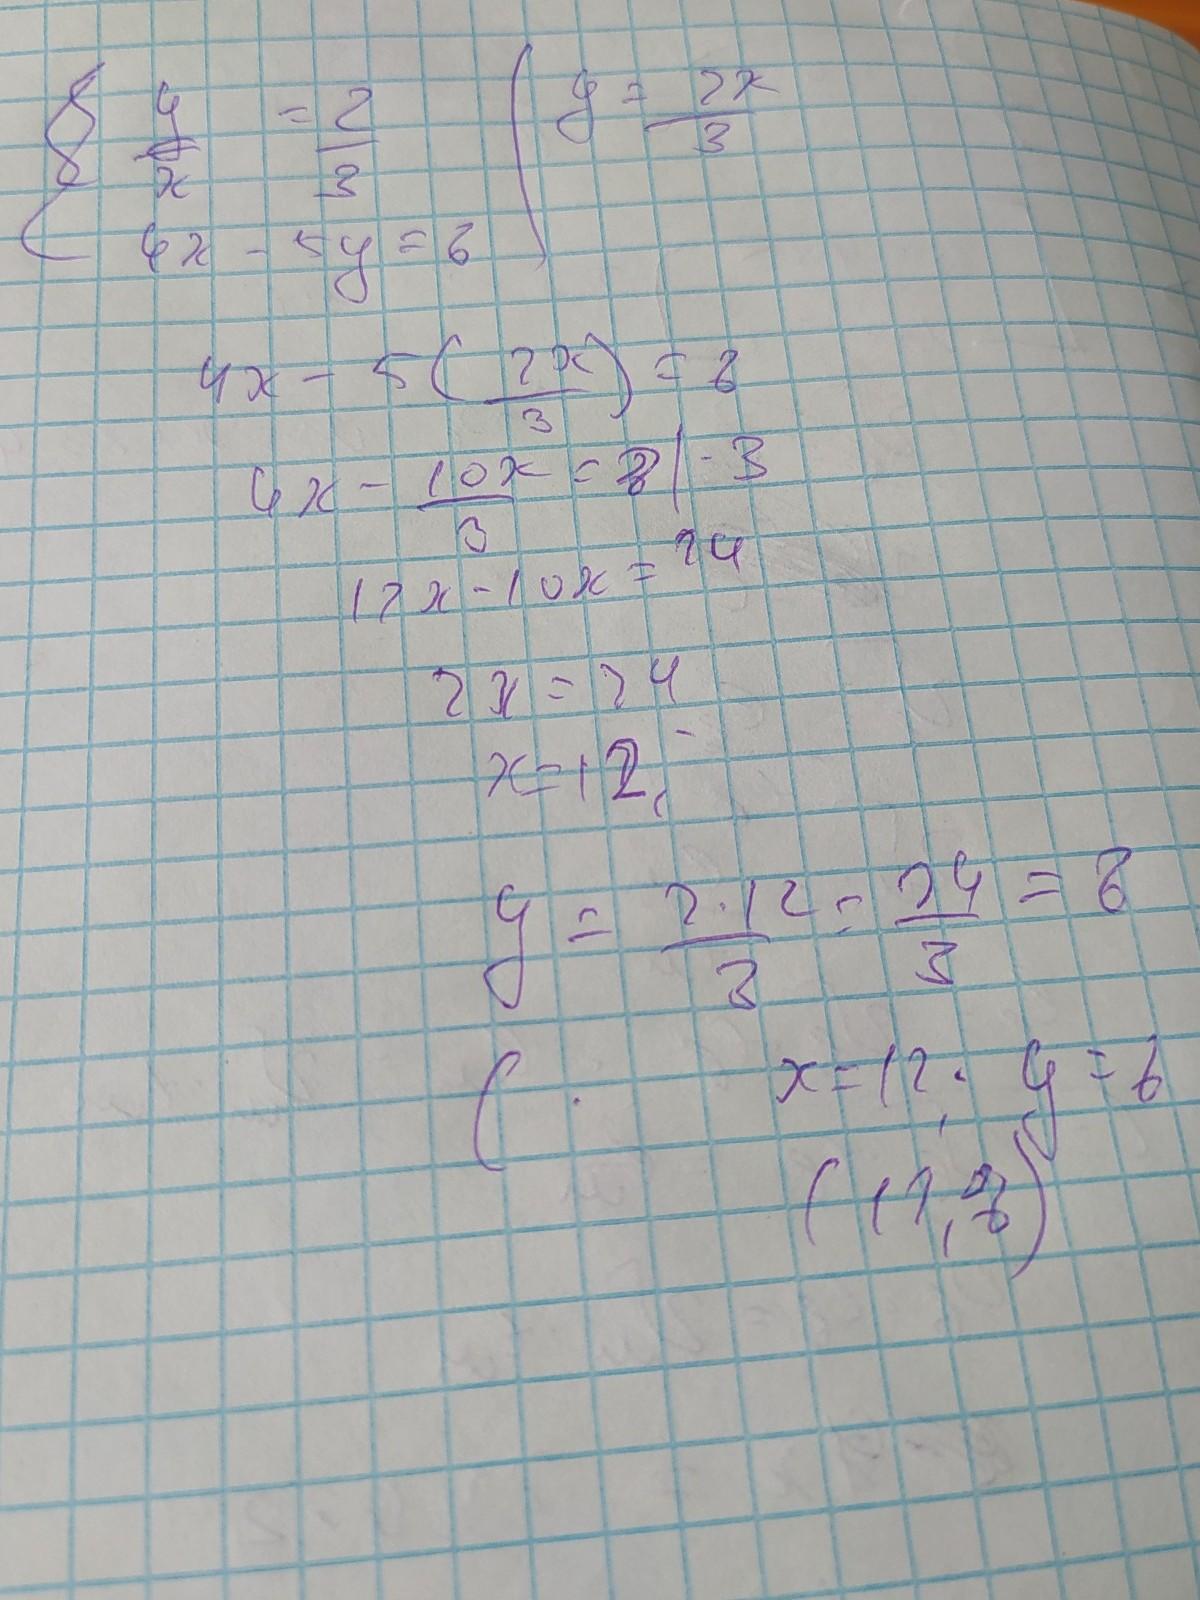 y/x = 2/3 | y = 2x/3
4x - 5y = 8
4x - 5(2x/3) = 8
4x - 10x/3 = 8 | · 3
12x - 10x = 24
2x = 24
x = 12,
y = 2·12/3 = 24/3 = 8
( · x = 12; y = 8
(12, 8)